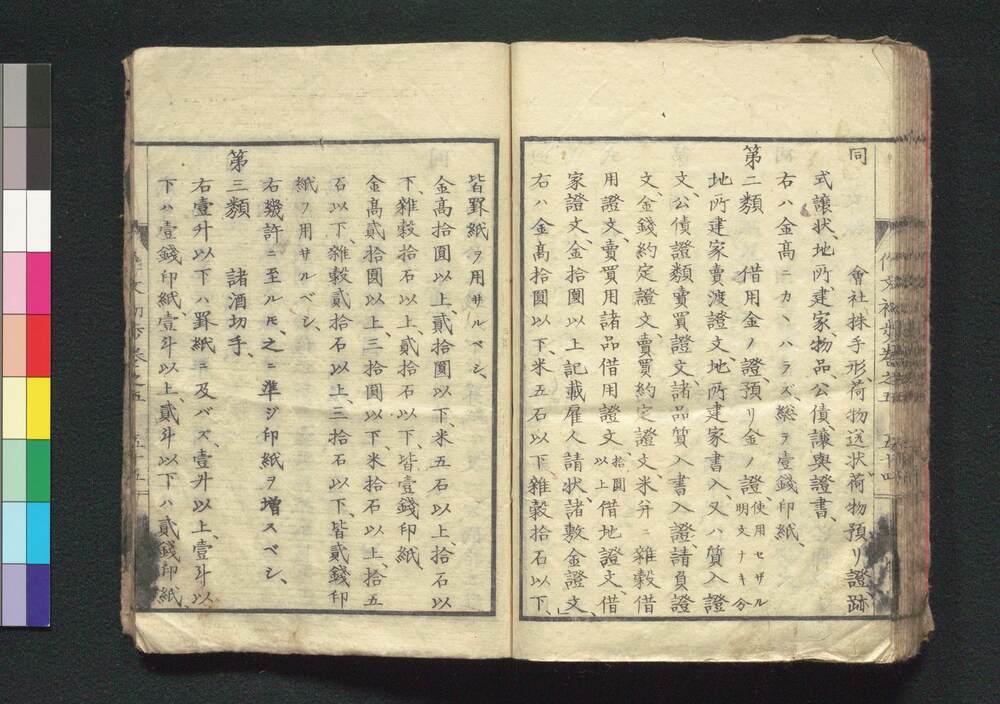 同　會社株手形、荷物送状、荷物預リ證跡
式讓状、地所、建家、物品公債、讓與證書、
右ハ金髙ニカヽハラズ、総ヲ壹錢印紙、
第二類　借用金ノ證、預リ金ノ證、使用セザル明文ナキ分
地所建家賣渡證文、地所建家書入、又ハ質入證
文、公債證類賣買證文、諸品質入書入證、請負證
文、金錢約定證文、賣買約定證文、米并ニ雜穀借
用證文、賣買用諸品借用證文、拾圓以上借地證文、借
家證文、金拾圓以上記載雇人請状、諸敷金證文、
右ハ金髙拾圓以下、米五石以下、雜穀拾石以下、
皆罫紙ヲ用サルベシ、
金髙拾圓以上、貳拾圓以下、米五石以上、拾石以
下、雜穀拾石以上、貳拾石以下、皆壹錢印紙、
金髙貳拾圓以上、三拾圓以下、米拾石以上、拾五
石以下、雜穀貳拾石以上、三拾石以下、皆貳錢印
紙ヲ用サルベシ、
右幾許ニ至ルモ、之ニ準ジ印紙ヲ増スベシ、
第三類　諸酒切手、
右壹升以下ハ罫紙ニ及バズ、壹升以上、壹斗以
下ハ壹錢印紙、壹斗以上、貳斗以下ハ貳錢印紙、